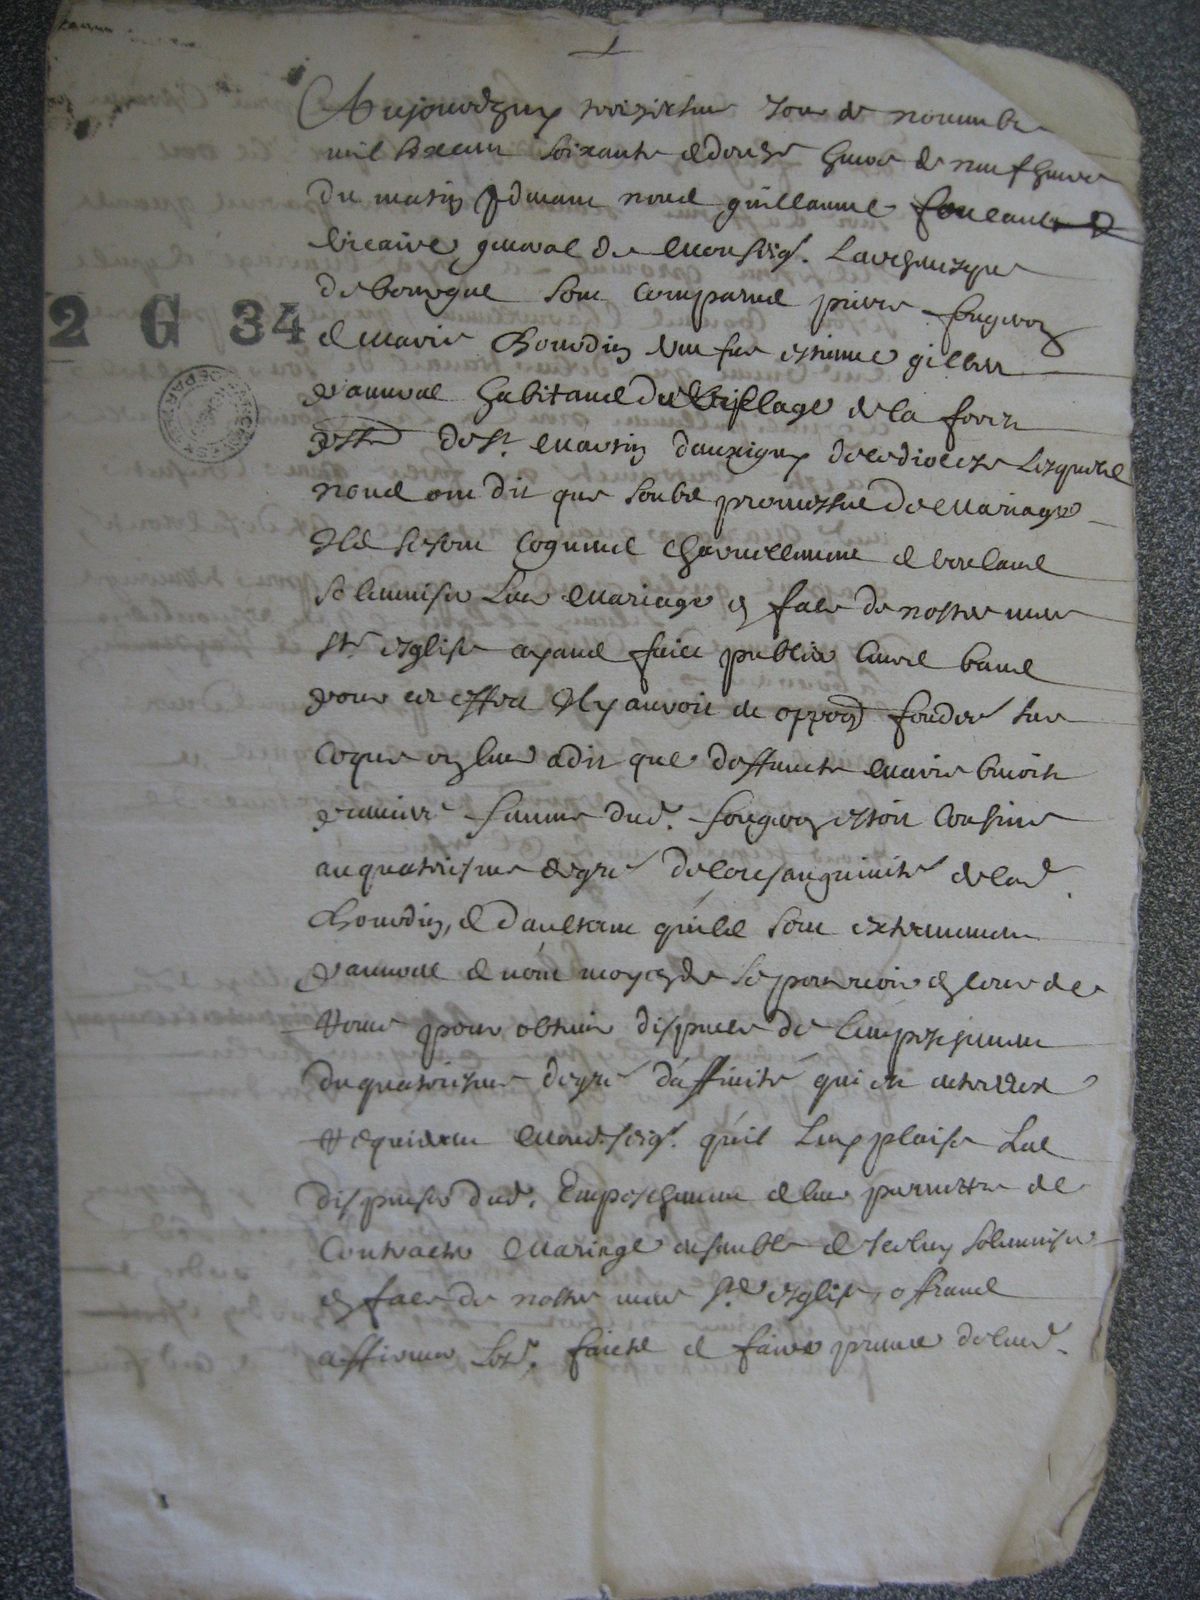 Aujourdhuy treiziesme Jour de novembre
mil six cens soixante & douze heure de neuf heures
du matin pardevant nous guillaume foucault
vicaire general de Monseigr. Larchevesque
de bourges sont comparus pierre
& Marie Bourdin veufve estienne gilbert
pauvres habitans du village de la forest
psse de St. Martin dauxigny de ce dioceze lesquels
nous ont dit que soubs promesses de Mariage
Ils se sont cogneus charnellement & voulans
solemniser leur Mariage en face de nostre mere
Ste esglise ayans faict publier leurs bans
pour cet effect Il y auroit eu opposon fondée sur
ce que on leur a dit que deffuncte Marie benoist
premiere femme dud. estoit cousine
au quatriesme degré de consanguinité de lad.
Bourdin, & daultant quils sont extremement
pauvres & nont moyen de se pourvoir en cour de
Rome pour obtenir dispence de lempeschement
du quatriesme degré d'affinité qui est entreeux
Requierent Mond. seigr. quil luy plaise les
dispenser dud. Empeschement & leur permettre de
Contracter Mariage ensemble & Iceluy solemniser
en face de nostre mere Ste esglise, offrans
affirmer lesd. faicts & faire preuve de leurd.
2 G 34